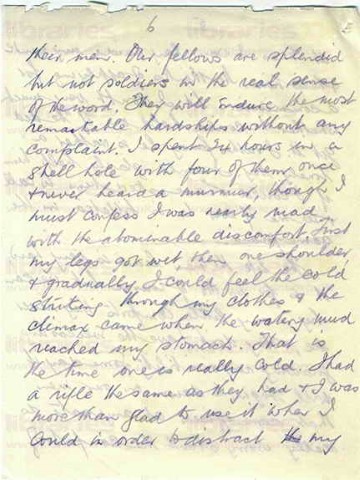 6
their men. Our fellows are splendid
but not soldiers in the real sense
of the word. They will endure the most
remarkable hardships without any
complaint. I spent 24 hours in a
shell hole with four of them once
& never heard a murmur, though I
must confess I was nearly mad
with the abominable discomfort. First
my legs got wet then one shoulder
& gradually I could feel the cold
striking through my clothes & the
climax came when the watery mud
reached my stomach. That is
the time one is really cold. I had
a rifle the same as they had & I was
more than glad to use it when I
could in order to distract my